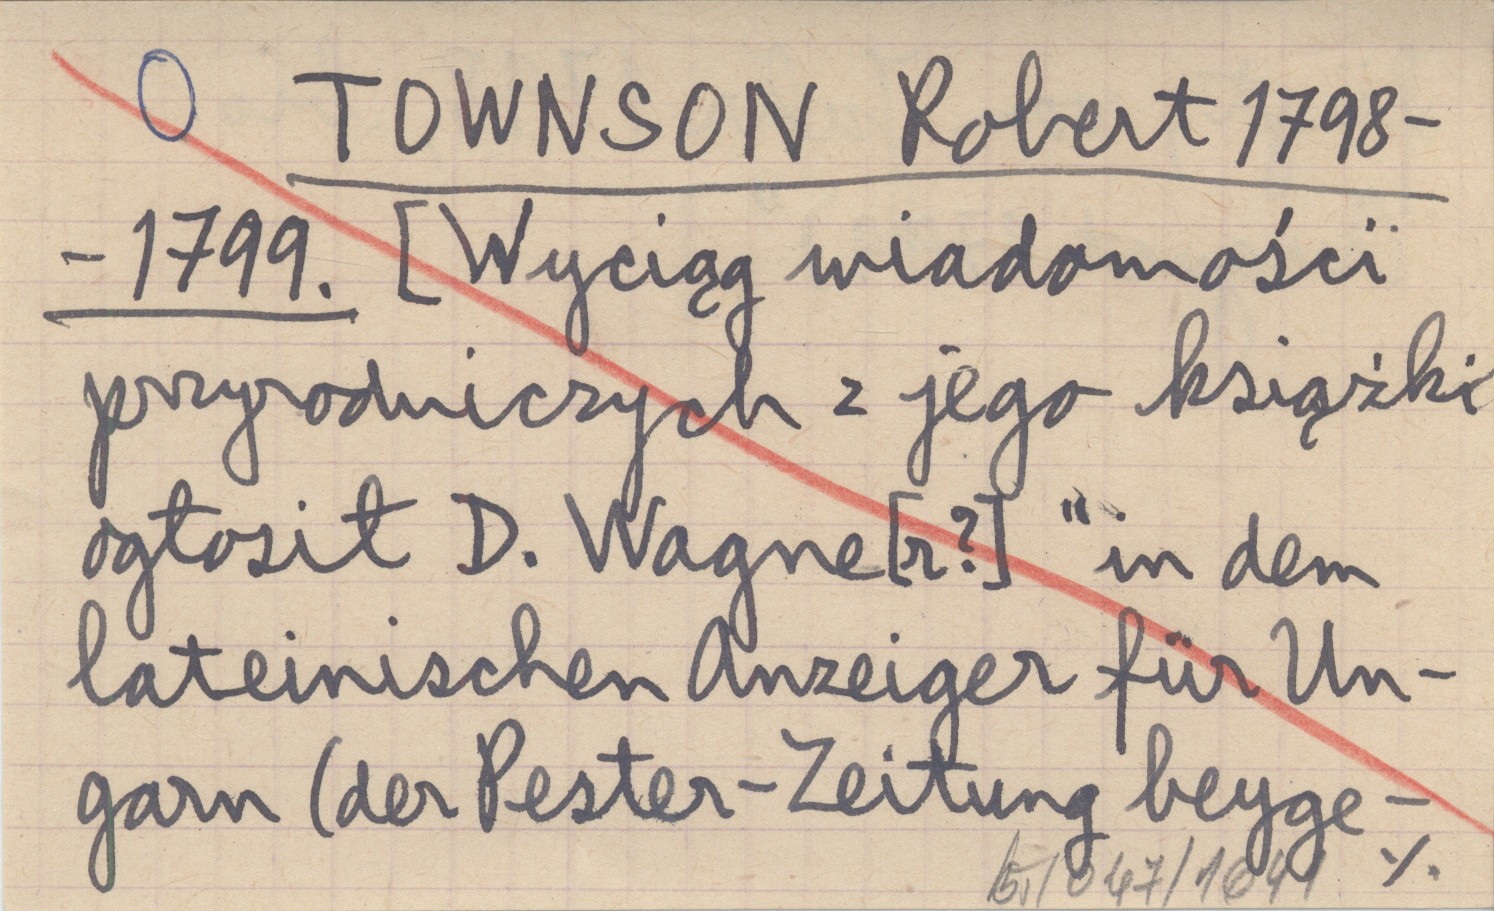 O TOWNSON Robert 1798-
-1799. [Wyciąg wiadomości
przyrodniczych z jego książki
ogłosił D. Wagne[r?] "in dem
lateinischen Anzeiger für Un-
garn (der Pester-Zeitung beyge-
./.